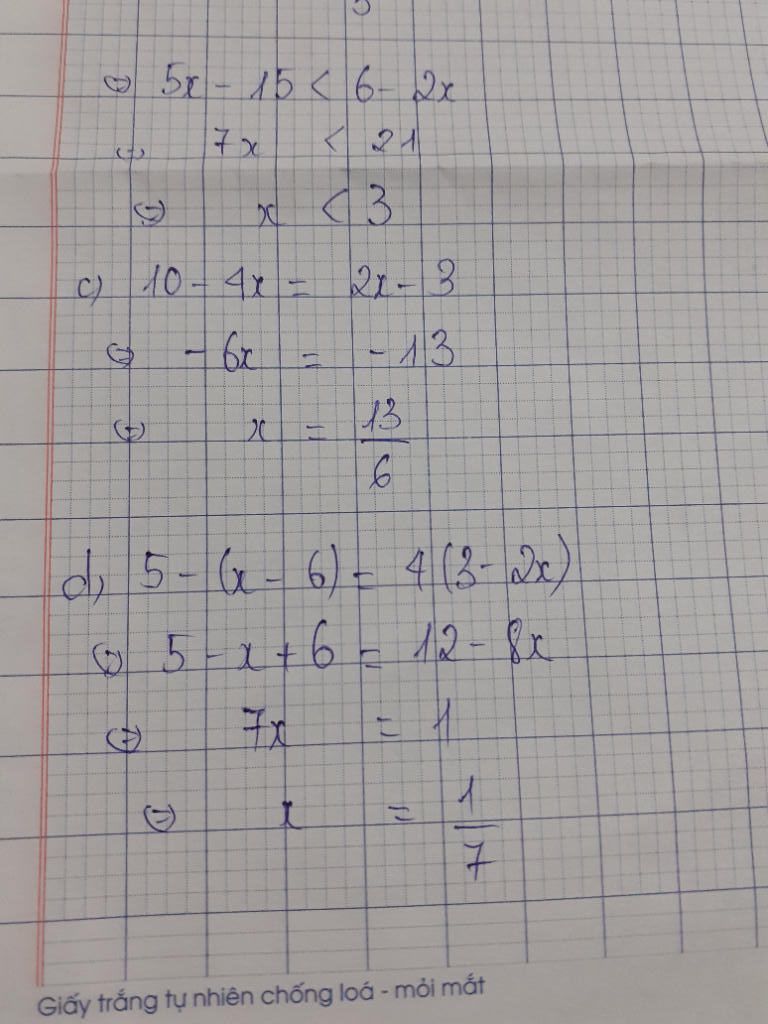 ⇔ 5x - 15 < 6 - 2x
⇔ 7x < 21
⇔ x < 3
c) 10 - 4x = 2x - 3
⇔ - 6x = - 13
⇔ x = 13/6
d) 5 - (x - 6) = 4(3 - 2x)
⇔ 5 - x + 6 = 12 - 8x
⇔ 7x = 1
⇔ x = 1/7
Giấy trắng tự nhiên chống loá - mỏi mắt